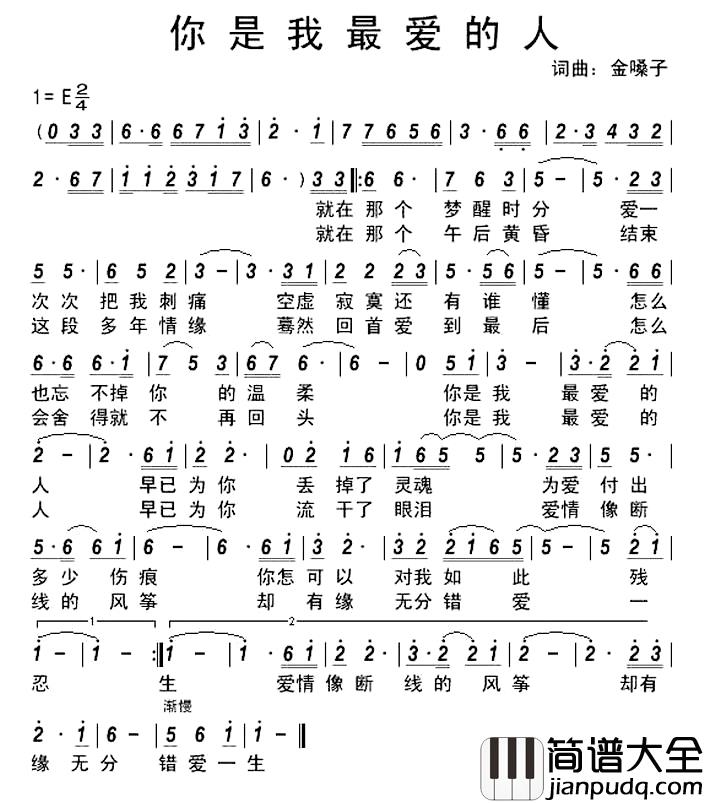 你是我最爱的人
词曲：金嗓子
1=E 2/4
(0 3 3 | 6·6 6 7 1 3 | 2· 1 | 7 7 6 5 6 | 3· 6 6 | 2·3 4 3 2 |
2· 6 7 | 1 1 2 3 1 7 | 6· ) 3 3 ‖: 6 6· | 7 6 3 | 5 – | 5· 2 3 |
就在那个 梦醒时分 爱一
就在那个 午后黄昏 结束
5 5· | 6 5 2 | 3 – | 3· 3 1 | 2 2 2 3 | 5·5 6 5 | 5· 6 6 |
次次 把我刺痛 空虚 寂寞还 有谁懂 怎么
这段 多年情缘 蓦然 回首爱 到最后 怎么
6·6 6·1 | 7 5 3 | 6 7 6· | 6 – | 0 5 1 | 3 – | 3·2 2 1 |
也忘 不掉你 的温柔 你是我 最爱的
会舍 得就不 再回头 你是我 最爱的
2 – | 2· 6 1 | 2 2· | 0 2 1 6 | 1 6 5 5 | 5· 2 3 | 5 5· |
人 早已为你 丢掉了灵魂 为爱付出
人 早已为你 流干了眼泪 爱情像断
5·6 6 1 | 6 – | 6· 6 1 | 3 2· | 3 2 | 2 1 6 5 | 5 2 1 |
多少伤痕 你怎可以 对我如此 残
线的风筝 却有缘 无分错爱 一
1 2
1 – | 1 – :‖ 1 – | 1· 6 1 | 2 2· | 3·3 2 3 | 2 – | 2· 2 3 |
忍 生 爱情像断 线的风筝 却有
渐慢
2· 1 | 6 – | 5 6 1 | 1 – ‖
缘无分 错爱一生
简谱大全
jianpudq.com